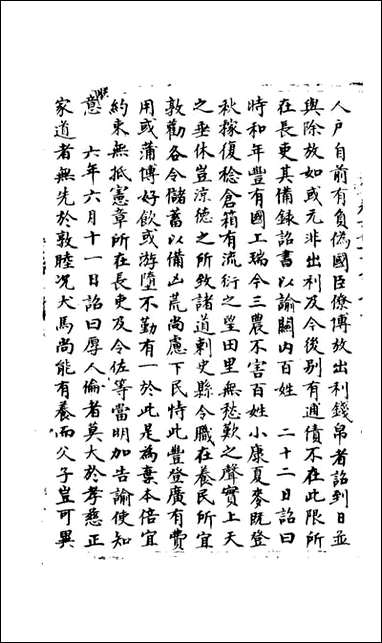 人户自前有負偽國臣僚博放出利錢帛者詔到日並
與除放如或元非出利及今後别有逋債不在此限所
在長吏其備録詔書以諭闗内百姓　二十二日詔曰
時和年豐有國工瑞今三農不害百姓小康夏麥既登
秋稼復稔倉箱有流衍之望田里無愁歎之聲實上天
之垂休豈凉徳之所致諸道刺史縣令職在養民所宜
敦勸各令儲蓄以備凶荒尚慮下民恃此豐登廣有費
用或蒲博好飲或游墮不勤有一於此是為棄本倍宜
約束無抵憲章所在長吏及令佐等當明加告諭使知
朕意　六年六月十一日詔曰厚人倫者莫大於孝慈正
家道者無先於敦睦况犬馬尚能有養而父子豈可異